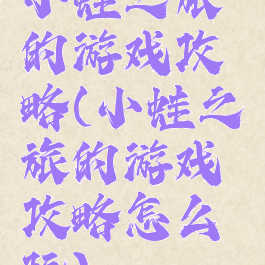 小蛙之旅
的游戏攻
略(小蛙之
旅的游戏
攻略怎么
玩)